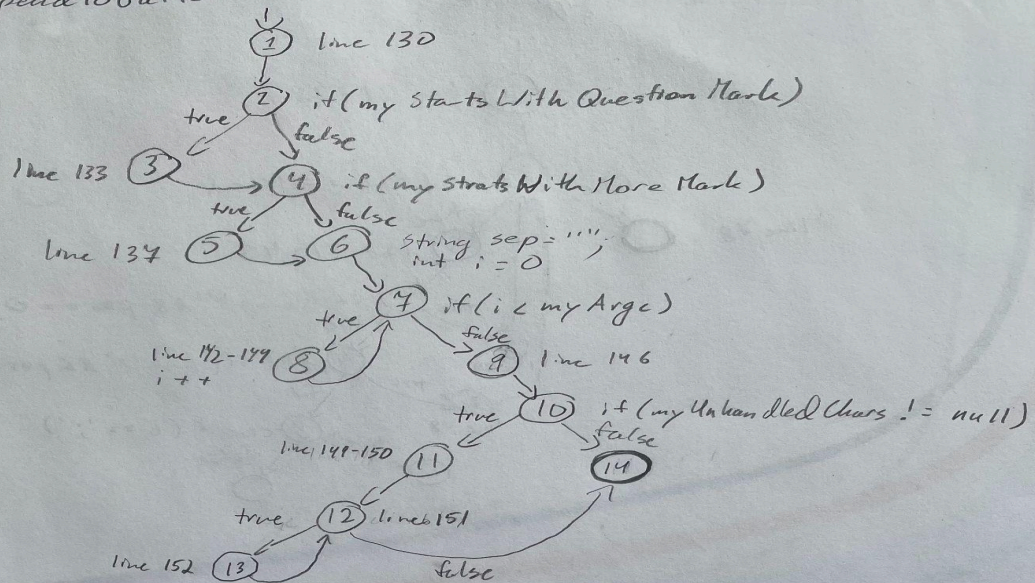 1 line 130
2 if (my Starts With Question Mark)
true false
line 133 3 4 if (my Strats With More Mark)
true false
line 137 5 6 string sep = "";
int i = 0
7 if (i < my Argc)
true false
line 142-144 8 9 line 146
i++
true 10 if (my Unhandled Chars != null)
false
line 149-150 11 14
true 12 line 151
line 152 13 false